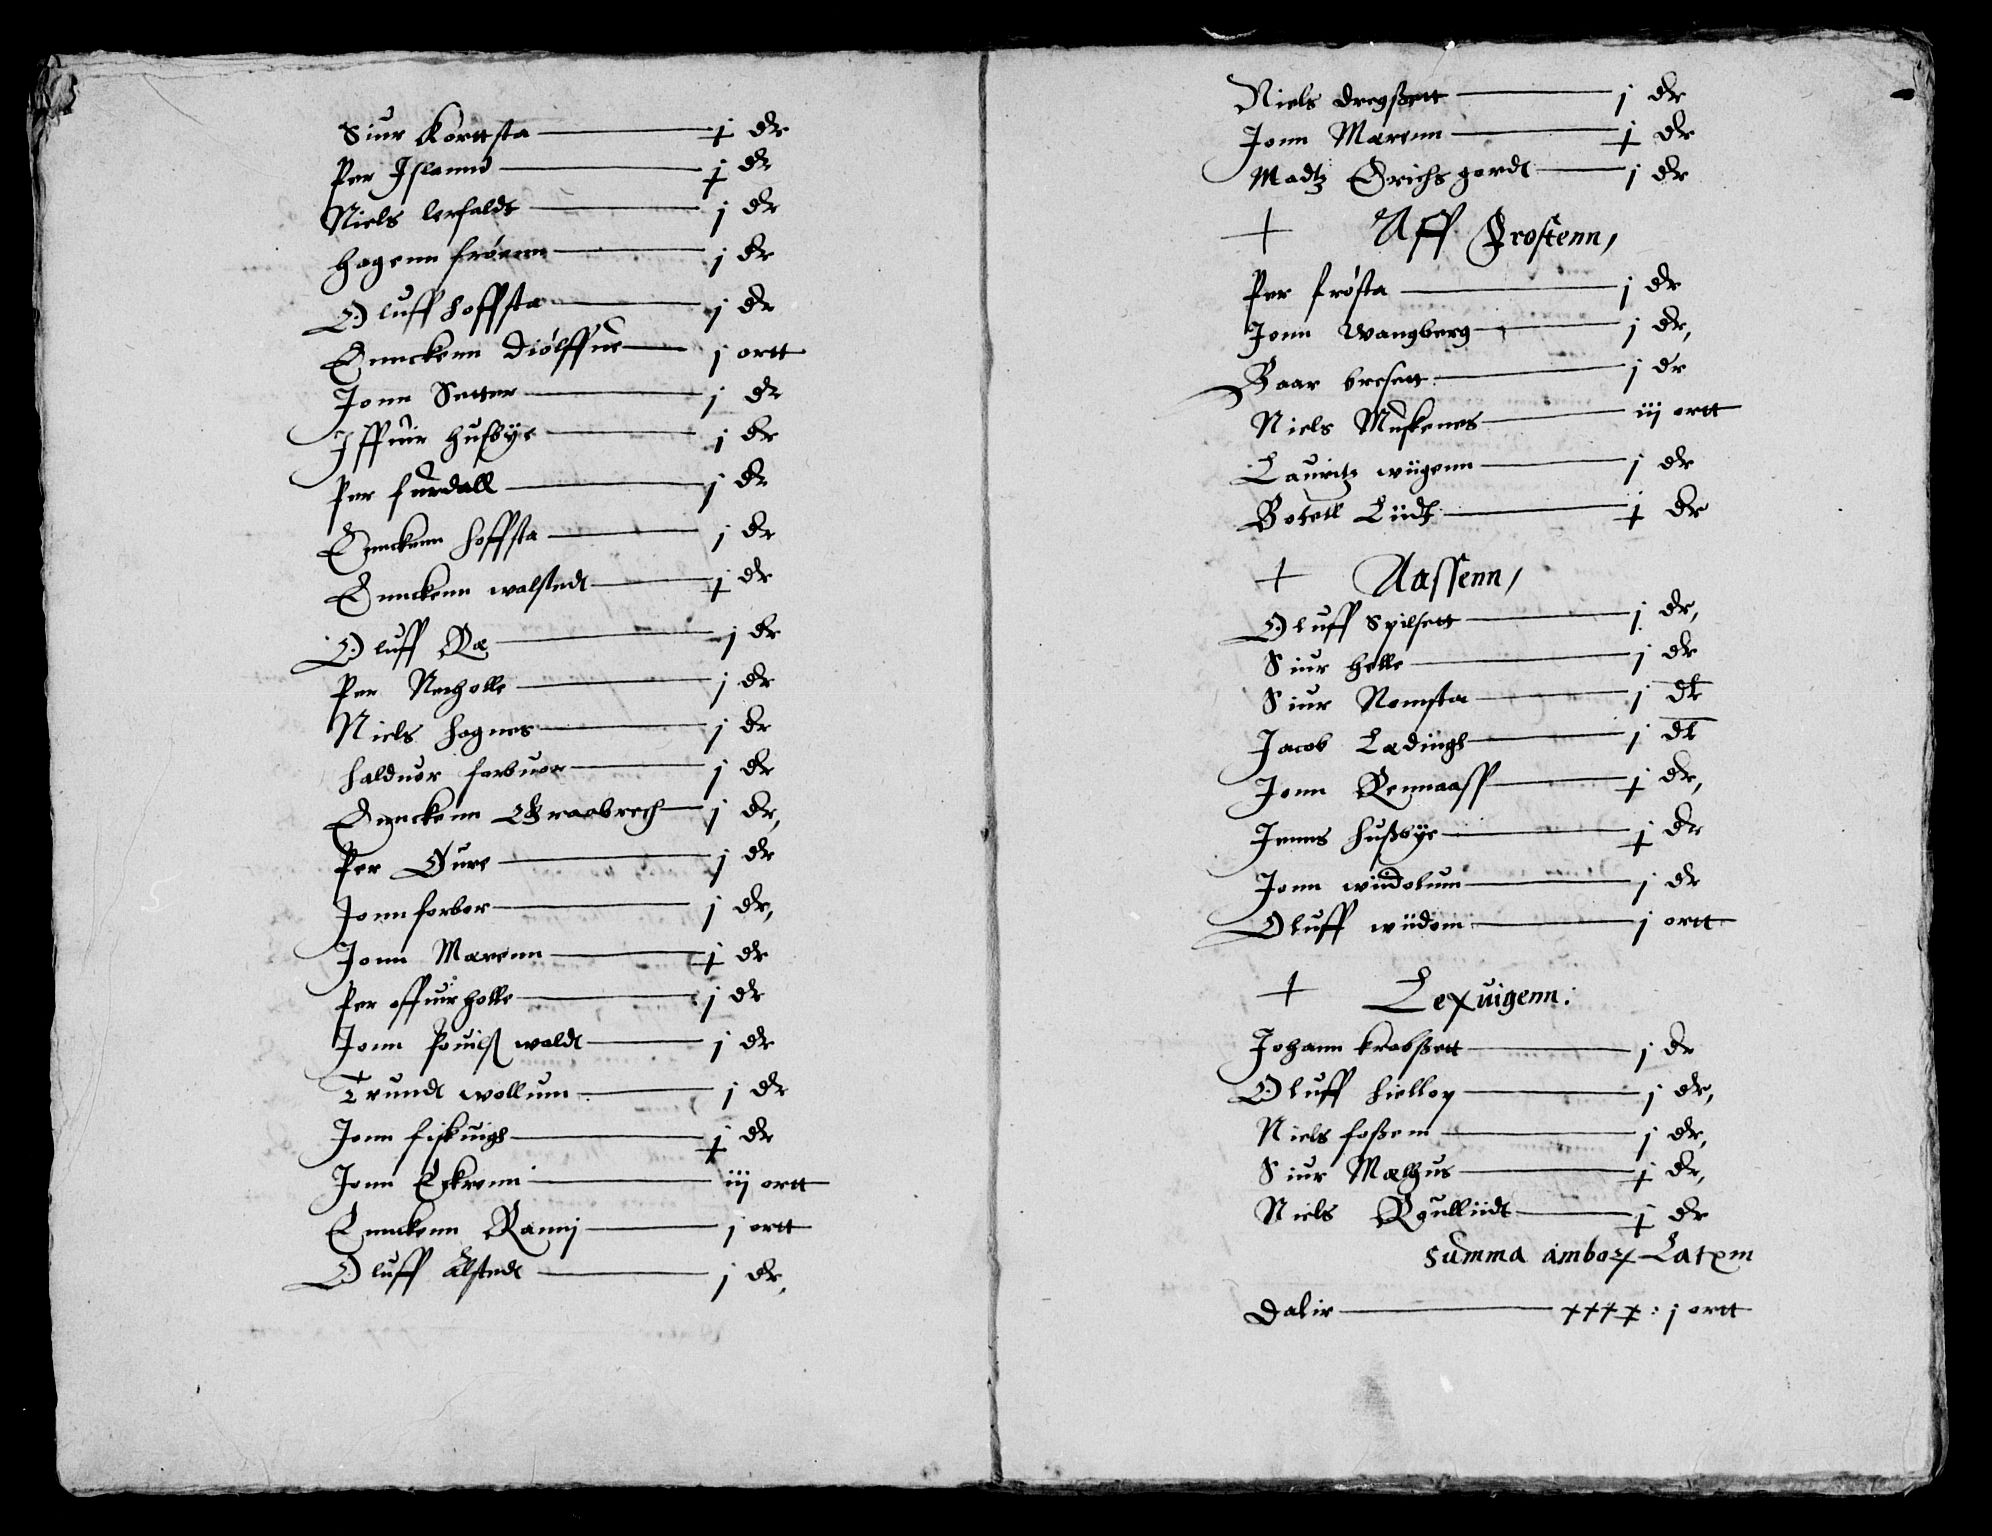 Siur Korttsta — j dr
Per Islannd — j dr
Niels lerfaldt — j dr
hagenn frøenn — j dr
Oluff hoffsta — j dr
Ennckenn Diølffne — j ortt
Jonn Setter — j dr
Iffuir husbye — j dr
Per furdall — j dr
Ennckenn hoffsta — j dr
Ennckenn walstedt — j dr
Oluff Ræ — j dr
Per Necholle — j dr
Niels hognes — j dr
halduor forbuor — j dr
Ennckenn Graabrech — j dr,
Per Øure — j dr
Jonn forbor — j dr,
Jonn Marenn — j dr
Per offuirholle — j dr
Jonn Pouils waldt — j dr
Trundt wollum — j dr
Jonn fiskuigh — j dr
Jonn Eskrenni — iij ortt
Ennckenn Rannj — j ortt
Oluff Alstedt — j dr,
Niels dregßett — j dr
Jonn Marenn — j dr
Madtz Erichsgardt — j dr
+ Aff Frostenn,
Per frøsta — j dr
Jonn Wangberg — j dr,
Baar bresett — j dr
Niels Muskenes — iij ortt
Lauritz wiigenn — j dr
Botell Liidt — j dr
+ Aassenn,
Oluff Spilsett — j dr,
Siur helle — j dr
Siur Nomsta — j dt
Jacob Lædingh — j dt
Jonn Rennaass — j dr,
Jenns hußbye — j dr
Jonn wiidolum — j dr
Oluff wiidom — j ortt
+ Lexuigenn:
Johann krabßett — j dr
Oluff hielloy — j dr,
Niels foßem — j dr,
Siur Mælhus — j dr,
Niels Røulliidt — j dr
Summa ambor Latem
Dalir — xxxx : j ortt